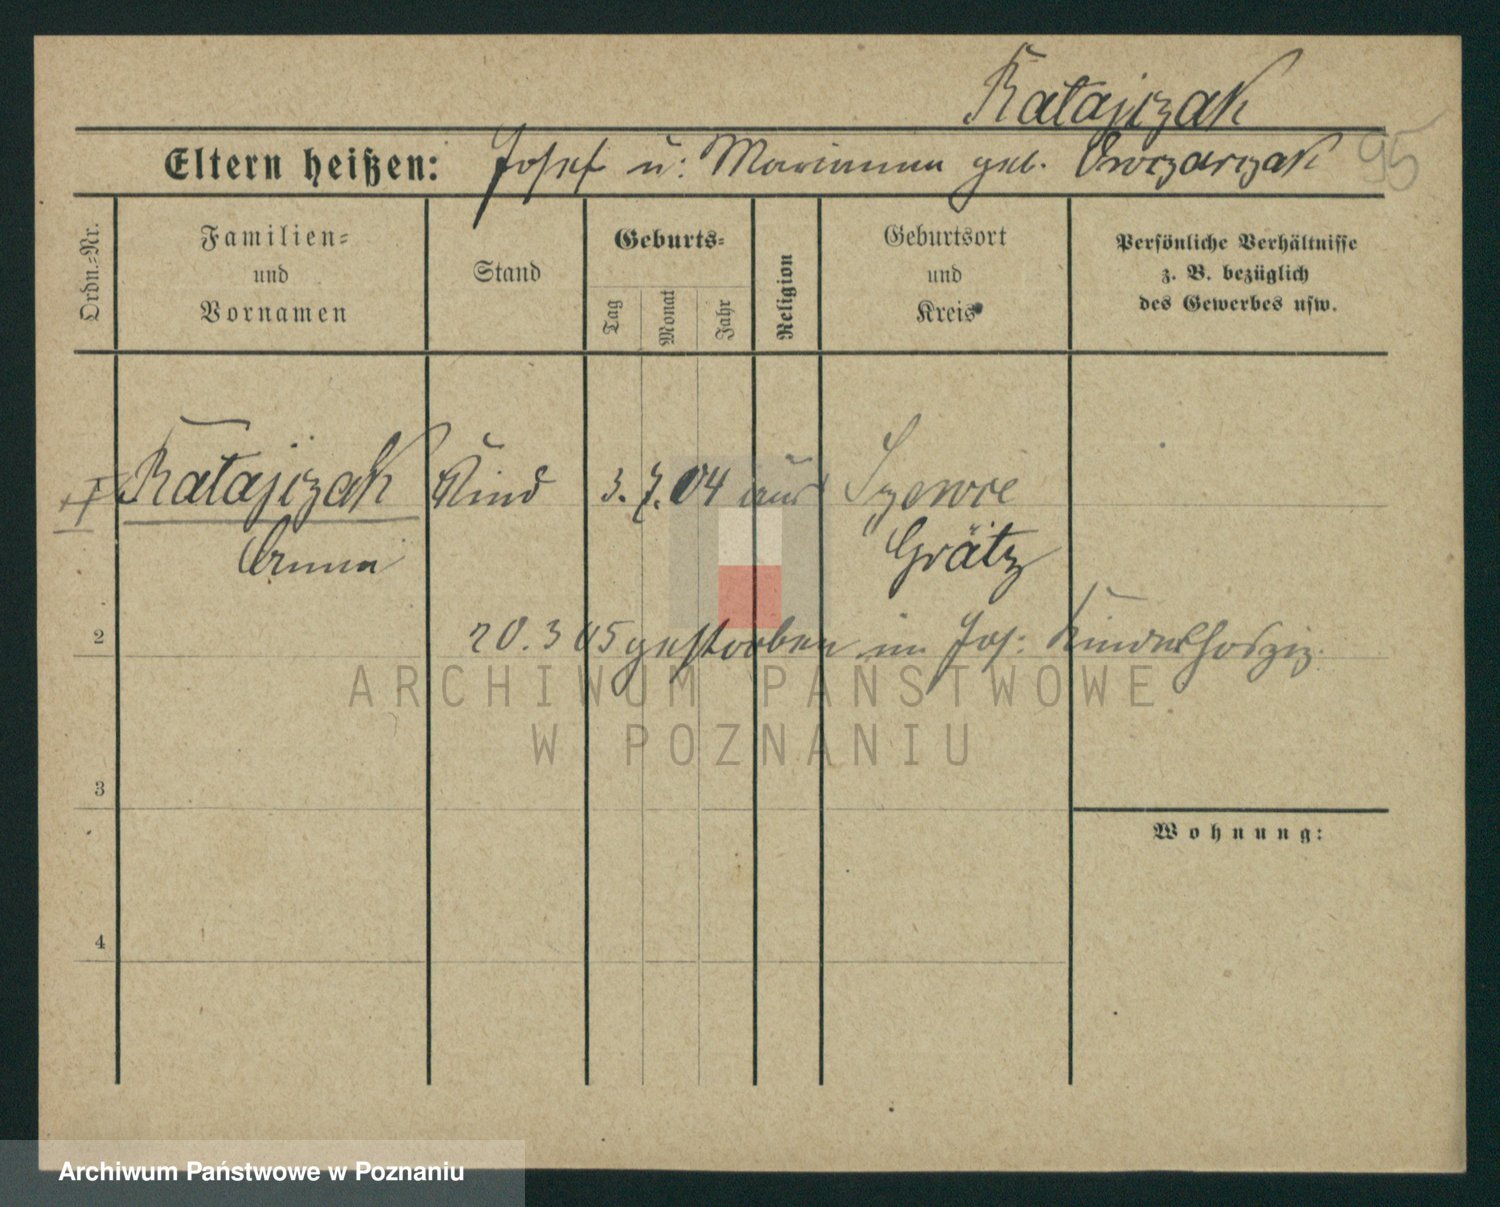 Ratajczak
Eltern heißen: Josef u. Marianna geb. Owczarczak 95
Ordn.-Nr.
Familien-
und
Vornamen
Stand
Geburts-
Tag
Monat
Jahr
Religion
Geburtsort
und
Kreis
Persönliche Verhältnisse
z. B. bezüglich
des Gewerbes usw.
Ratajczak Kind 3. 7. 04 Szewce
Anna Grätz
2 20. 3 05 gestorben im Jos: Kinderhospiz.
3
Wohnung:
4
ARCHIWUM PAŃSTWOWE
W POZNANIU
Archiwum Państwowe w Poznaniu